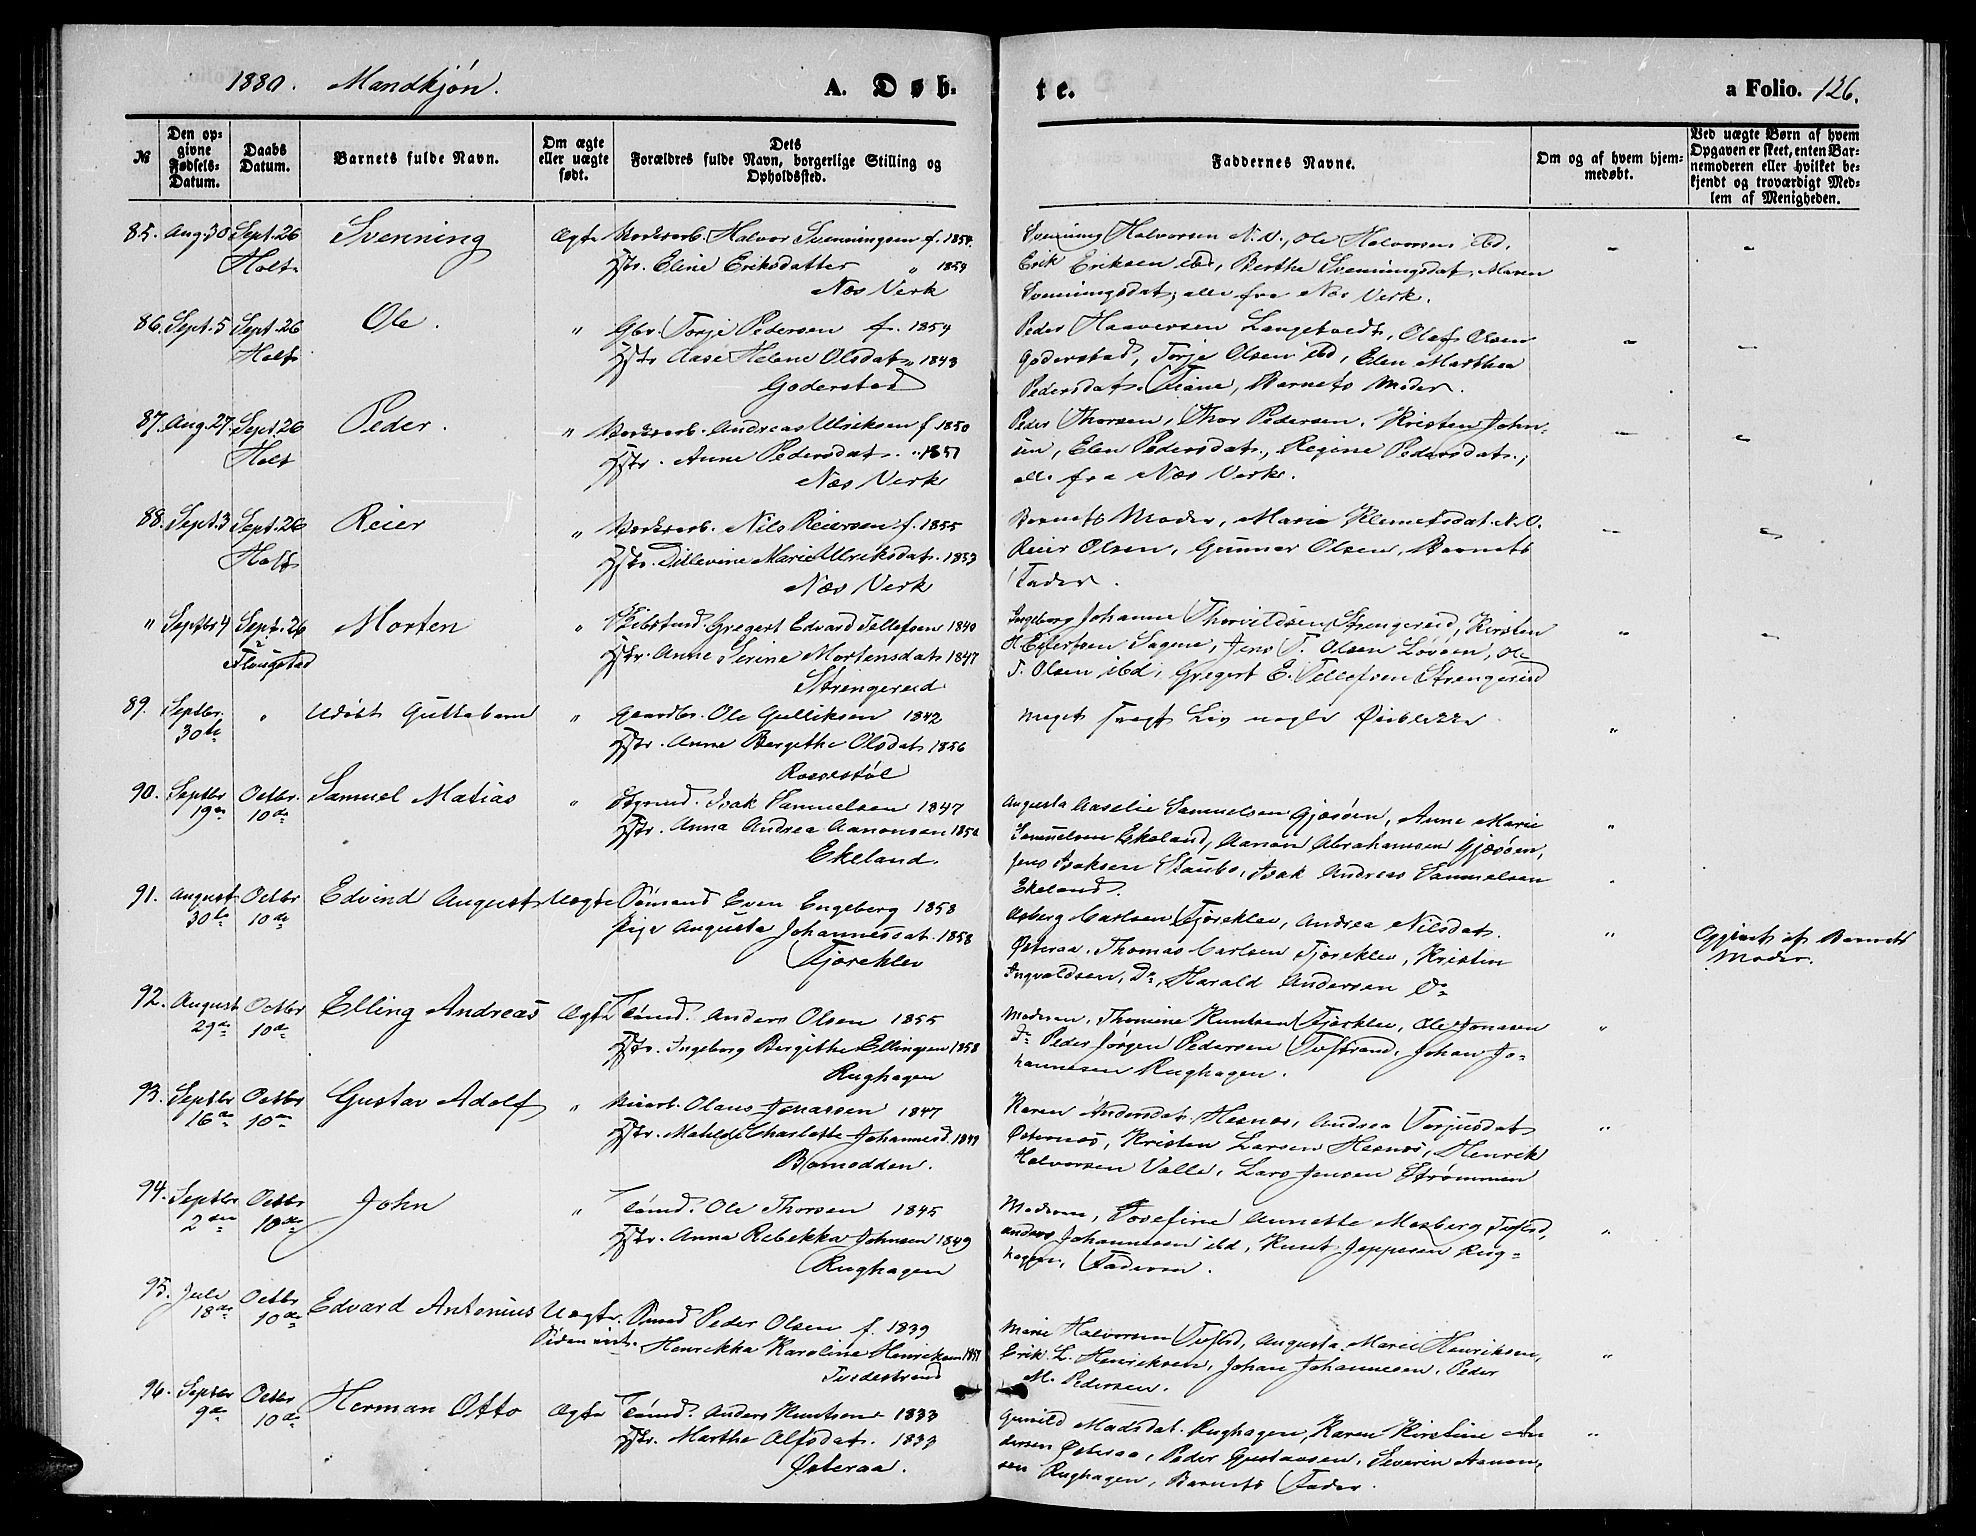 1880. Mandkjøn. A. Døb-
№
Den op-
givne
Fødsels-
Datum.
Daabs
Datum.
Barnets fulde Navn.
Om ægte
eller uægte
født.
Dets
Forældres fulde Navn, borgerlige Stilling og
Opholdssted.
85. Aug. 30 Sept. 26 Svenning Ægte Verksarb. Halvor Svenningsen f. 1854.
Holt Hstr. Eline Eriksdatter " 1859
Næs Verk
86. Sept. 5 Sept. 26 Ole. " Gbr. Torje Pedersen f. 1854
Holt Hstr. Aase Helene Olsdat. " 1843
Goderstad
87. Aug. 27 Sept. 26 Peder. " Verksarb. Andreas Ulriksen f 1850
Holt Hstr. Anne Pedersdat. " 1851
Næs Verk
88. Sept. 3 Sept. 26 Reier " Verksarb. Nils Reiersen f. 1855
Holt Hstr. Dillevine Marie Ulriksdat. 1853
Næs Verk
" Septbr 4 Sept. 26 Morten " Gregert Edvard Tellefsen 1840
Flougstad Hstr. Anne Serine Mortensdat 1847
Strengereid
89. Septbr. " Udøbt Guttebarn " Gaardbr. Ole Gulliksen 1842
30te Hstr. Anne Bergithe Olsdat 1856
90. Septbr Octbr. Samuel Matias " Isak Samuelsen 1847
19de 10de Hstr. Anna Andrea Aanonsen
Ekeland.
91. August Octbr Edvind August Uægte Sømand Even Engeberg 1858
30te 10de Pige Augusta Johannesdat. 1858
Fjæreklev
92. August Octbr Elling Andreas Ægte Tømd. Anders Olsen 1855
29de 10de Hstr. Ingeborg Bergithe Ellingsen 1858
Rughagen
93. Septbr Octbr Gustav Adolf " Olaus Jonassen 1847
16de 10de Hstr. Matilde Charlotte Johannesd. 1849
94. Septbr Octbr John " Tømd. Ole Thorsen 1845
2den 10de Hstr. Anna Rebekka Johnsen 1849
Rughagen
95. Juli Octbr Edvard Antonius Uægte. Sømd Peder Olsen f. 1839
18de 10de Siden viet. Henrikka Karoline Henriksen
Tvedestrand
96. Septbr Octbr Herman Otto Ægte Tømd. Anders Knutsen 1833
9de 10de Hstr. Marthe Alfsdat. 1833
Østeraa.
te. a Folio. 126.
Faddernes Navne.
Om og af hvem hjem-
medøbt.
Ved uægte Børn af hvem
Opgaven er skeet, enten Bar-
nemoderen eller hvilket be-
kjendt og troværdigt Med-
lem af Menigheden.
Svenning Halvorsen N.V., Ole Halvorsen ibd, " "
Erik Eriksen ibd, Berthe Svenningsdat, Maren
Svenningsdat; alle fra Næs Verk.
Peder Haaversen Langetvedt, Olaf Olsen
Goderstad, Torje Olsen ibd, Elen Marthea " "
Pedersdat. Barnets Moder.
Peder Thorsen, Thor Pedersen, Kristen John-
sen, Elen Pedersdat., Regine Pedersdat.; " "
alle fra Næs Verk.
Barnets Moder, Marie Klemetsdat. N.V. " "
Reier Olsen, Gunnar Olsen, Barnets
Fader.
Ingeborg Johanne Thorvildsen Strengereid, Kirsten
Sagene, Jens T. Olsen Løvøen, Ole " "
T. Olsen ibd, Gregert E. Tellefsen Strengereid
Meget svagt Liv nogle Øieblikke "
Augusta Aaselie Samuelsen Gjæsøen, Anne Marie
Samuelsen Ekeland, Aanon Abrahamsen Gjæsøen, "
Jens Isaksen Staubo, Isak Andreas Samuelsen
Ekeland.
Asberg Carlsen Fjæreklev, Andrea Nilsdat.
Østeraa. Thomas Carlsen Fjæreklev, Kristin " Opgivet af Barnets
Ingvaldsen, Do, Harald Andersen Do Moder.
Moderen, Thomine Knutsen Fjæreklev, Ole Jonasen "
Do Peder Jørgen Pedersen Tvdstrand, Johan Jo-
hannesen Rughagen.
Karen Andersdat. Hesnæs, Andrea Torjusdat
Østernæs, Kristen Larsen Hesnæs, Henrik "
Halvorsen Valle, Lars Jensen Strømmen
Moderen, Josefine Annette Mosberg Tvdstd,
Anders Johannessen ibd, Knut Jeppesen Rug- "
hagen, Faderen.
Marie Halvorsen Tvdstd, Augusta Marie Henriksen,
Erik L. Henriksen, Johan Johannesen, Peder "
M. Pedersen.
Gunild Madsdat. Rughagen, Karen Kirstine An-
dersen Østeraa, Peder Gustavsen, Severin Aanon- "
sen Rughagen, Barnets Fader.